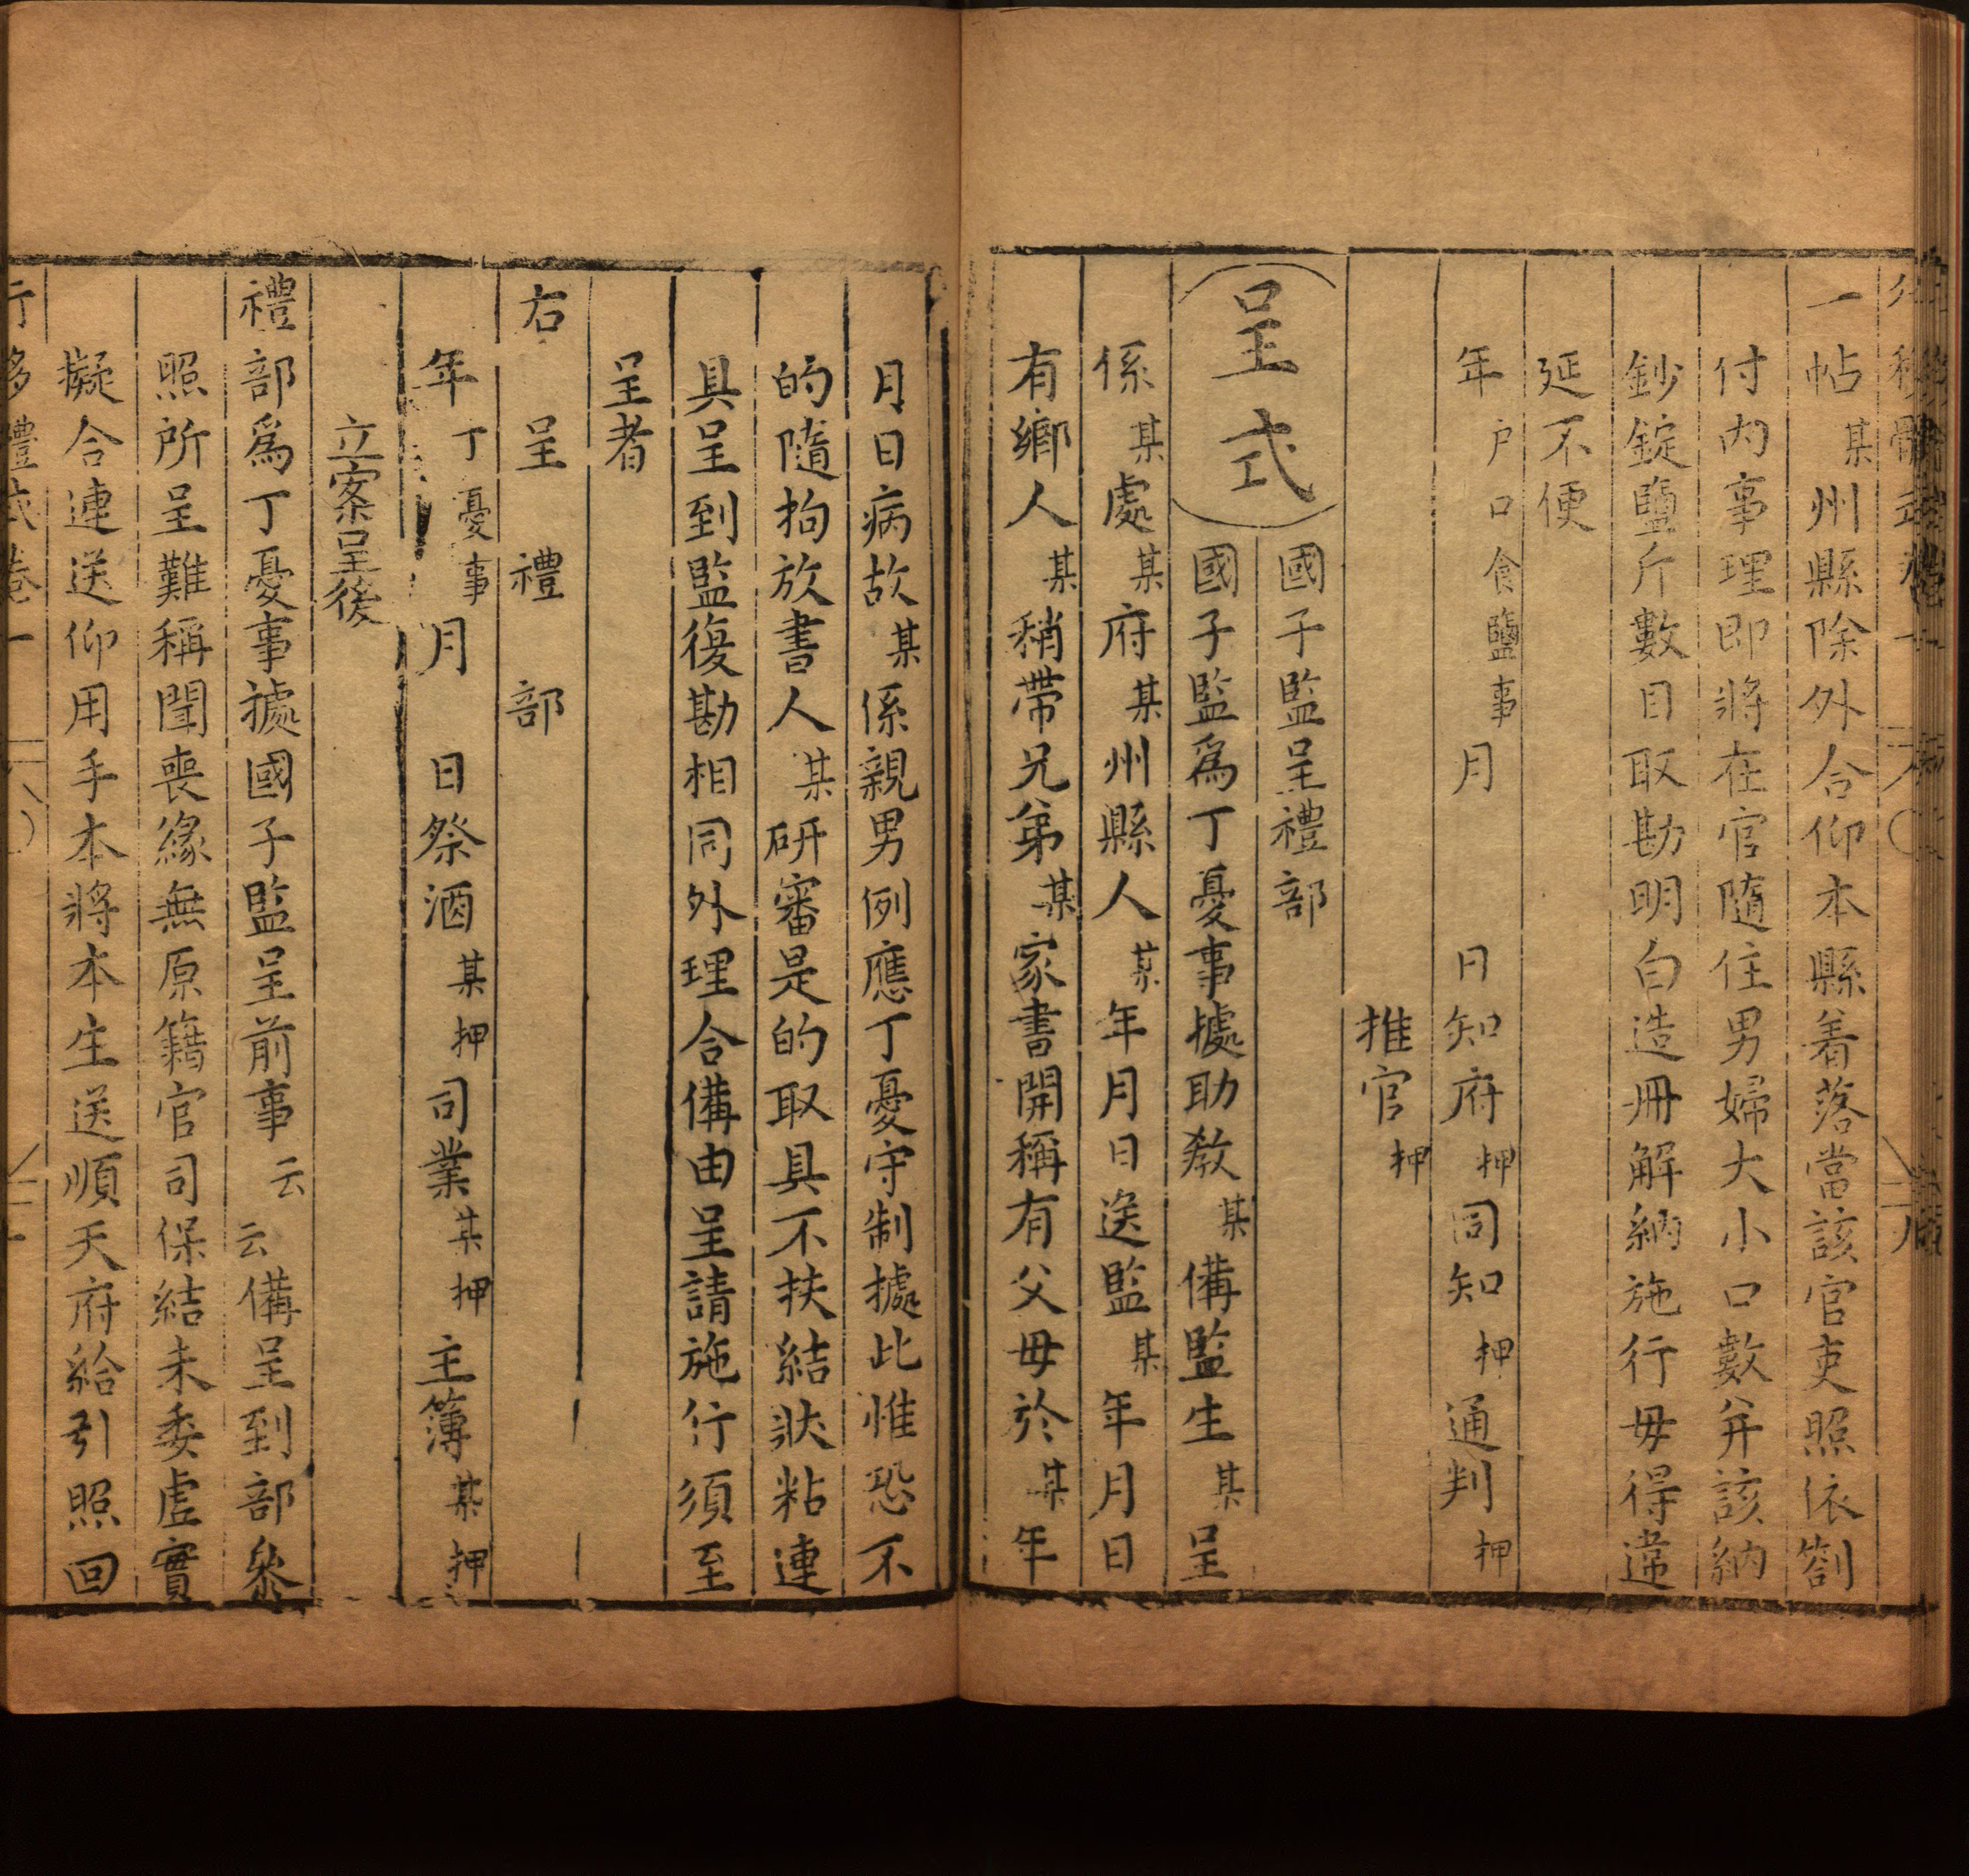 一帖某州縣除外合仰本縣着落當該官吏照依劄
付內事理即將在官隨住男婦大小口數并該納
鈔錠鹽斤數目取勘明白造冊解納施行毋得違
延不便
年户口食鹽事月　日知府押同知押通判押
推官押
呈式
國子監呈禮部
國子監爲丁憂事據助教某備監生某呈
係某處某府某州縣人某年月日送監某年月日
有鄉人某稍帶兄弟某家書開稱有父母於某年
月日病故某係親男例應丁憂守制據此惟恐不
的隨拘放書人某研審是的取具不扶結狀粘連
具呈到監復勘相同外理合備由呈請施行須至
呈者
右呈禮部
年丁憂事月　日祭酒某押司業某押主簿某押
立案呈後
禮部爲丁憂事據國子監呈前事云云備呈到部叅
照所呈難稱聞喪緣無原籍官司保結未委虛實
擬合連送仰用手本將本生送順天府給引照回